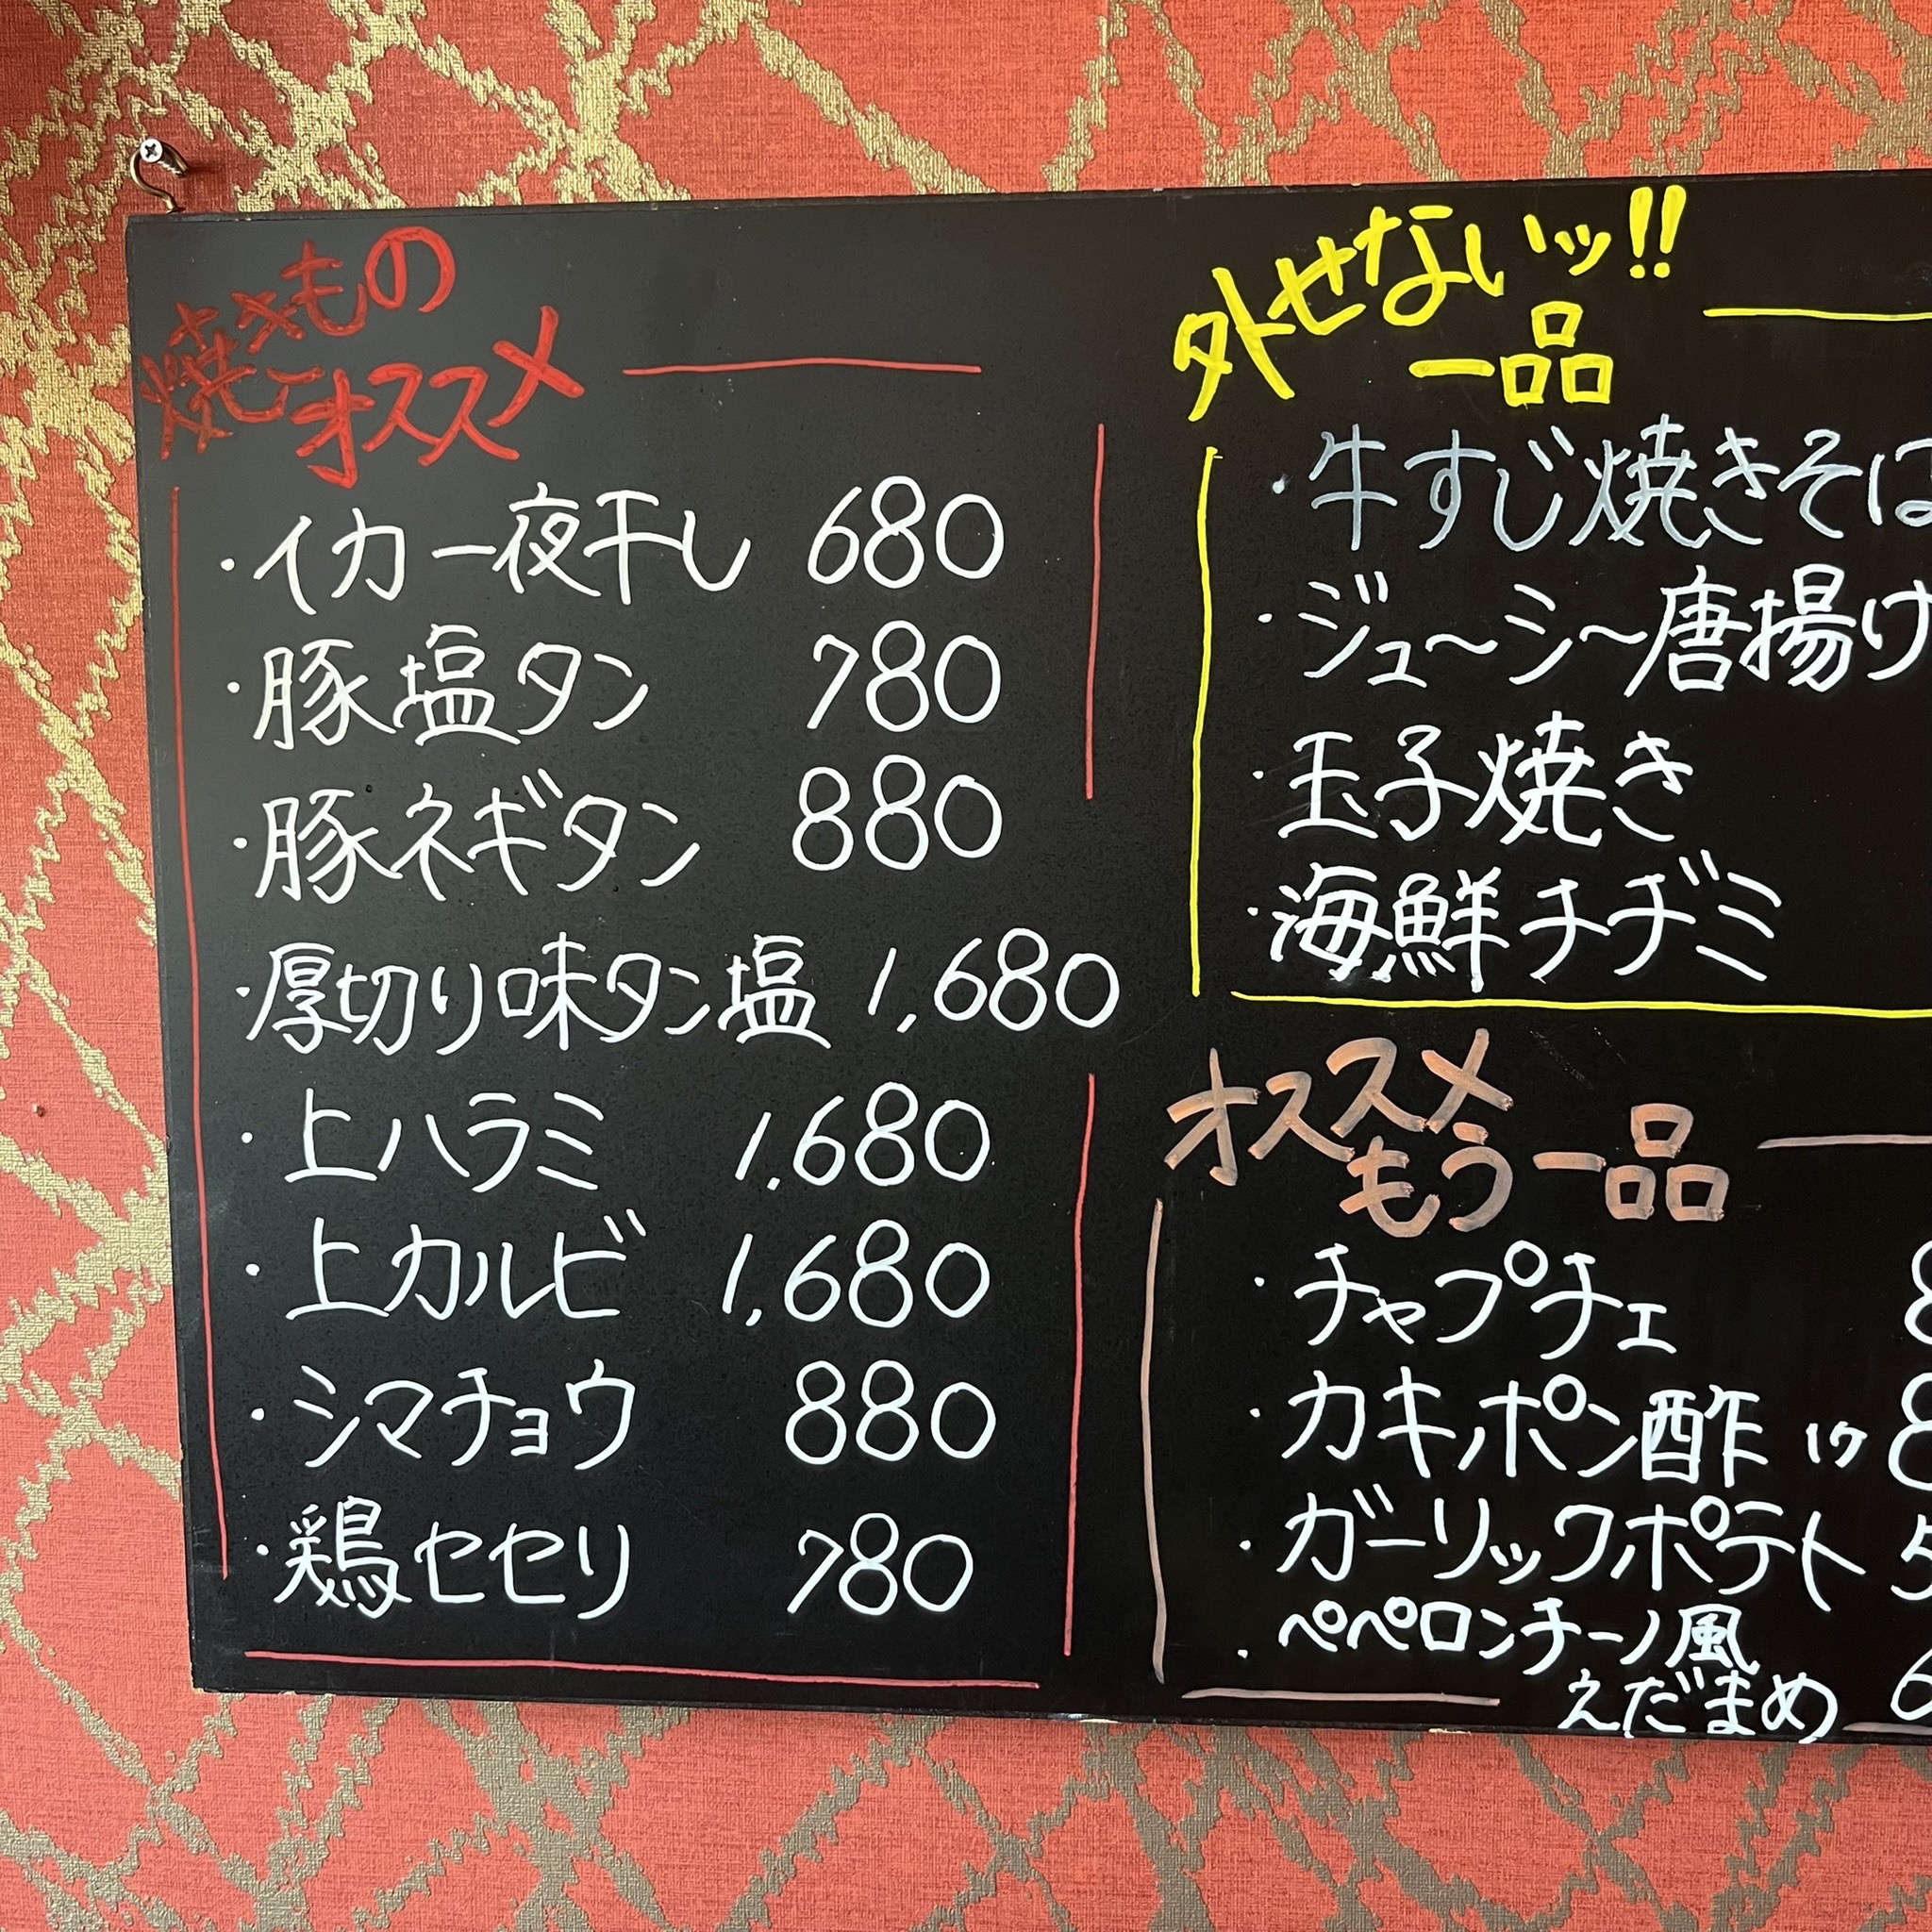 焼きもの
オススメ
・イカ一夜干し 680
・豚塩タン 780
・豚ネギタン 880
・厚切り味タン塩 1,680
・上ハラミ 1,680
・上カルビ 1,680
・シマチョウ 880
・鶏セセリ 780
外せないッ!!
一品
・牛すじ焼きそば
・ジュ〜シ〜唐揚げ
・玉子焼き
・海鮮チヂミ
オススメ
もう一品
・チャプチェ
・カキポン酢
・ガーリックポテト
・ペペロンチーノ風
えだまめ